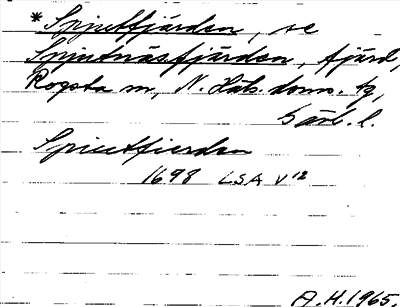 *Spjutfjärden, se
Spjutnäsfjärden, fjärd,
Rogsta sn, N. Häls. doms. tg,
Gävl. l.
Spiutfierden
1698 LSA V12
A.H. 1965.